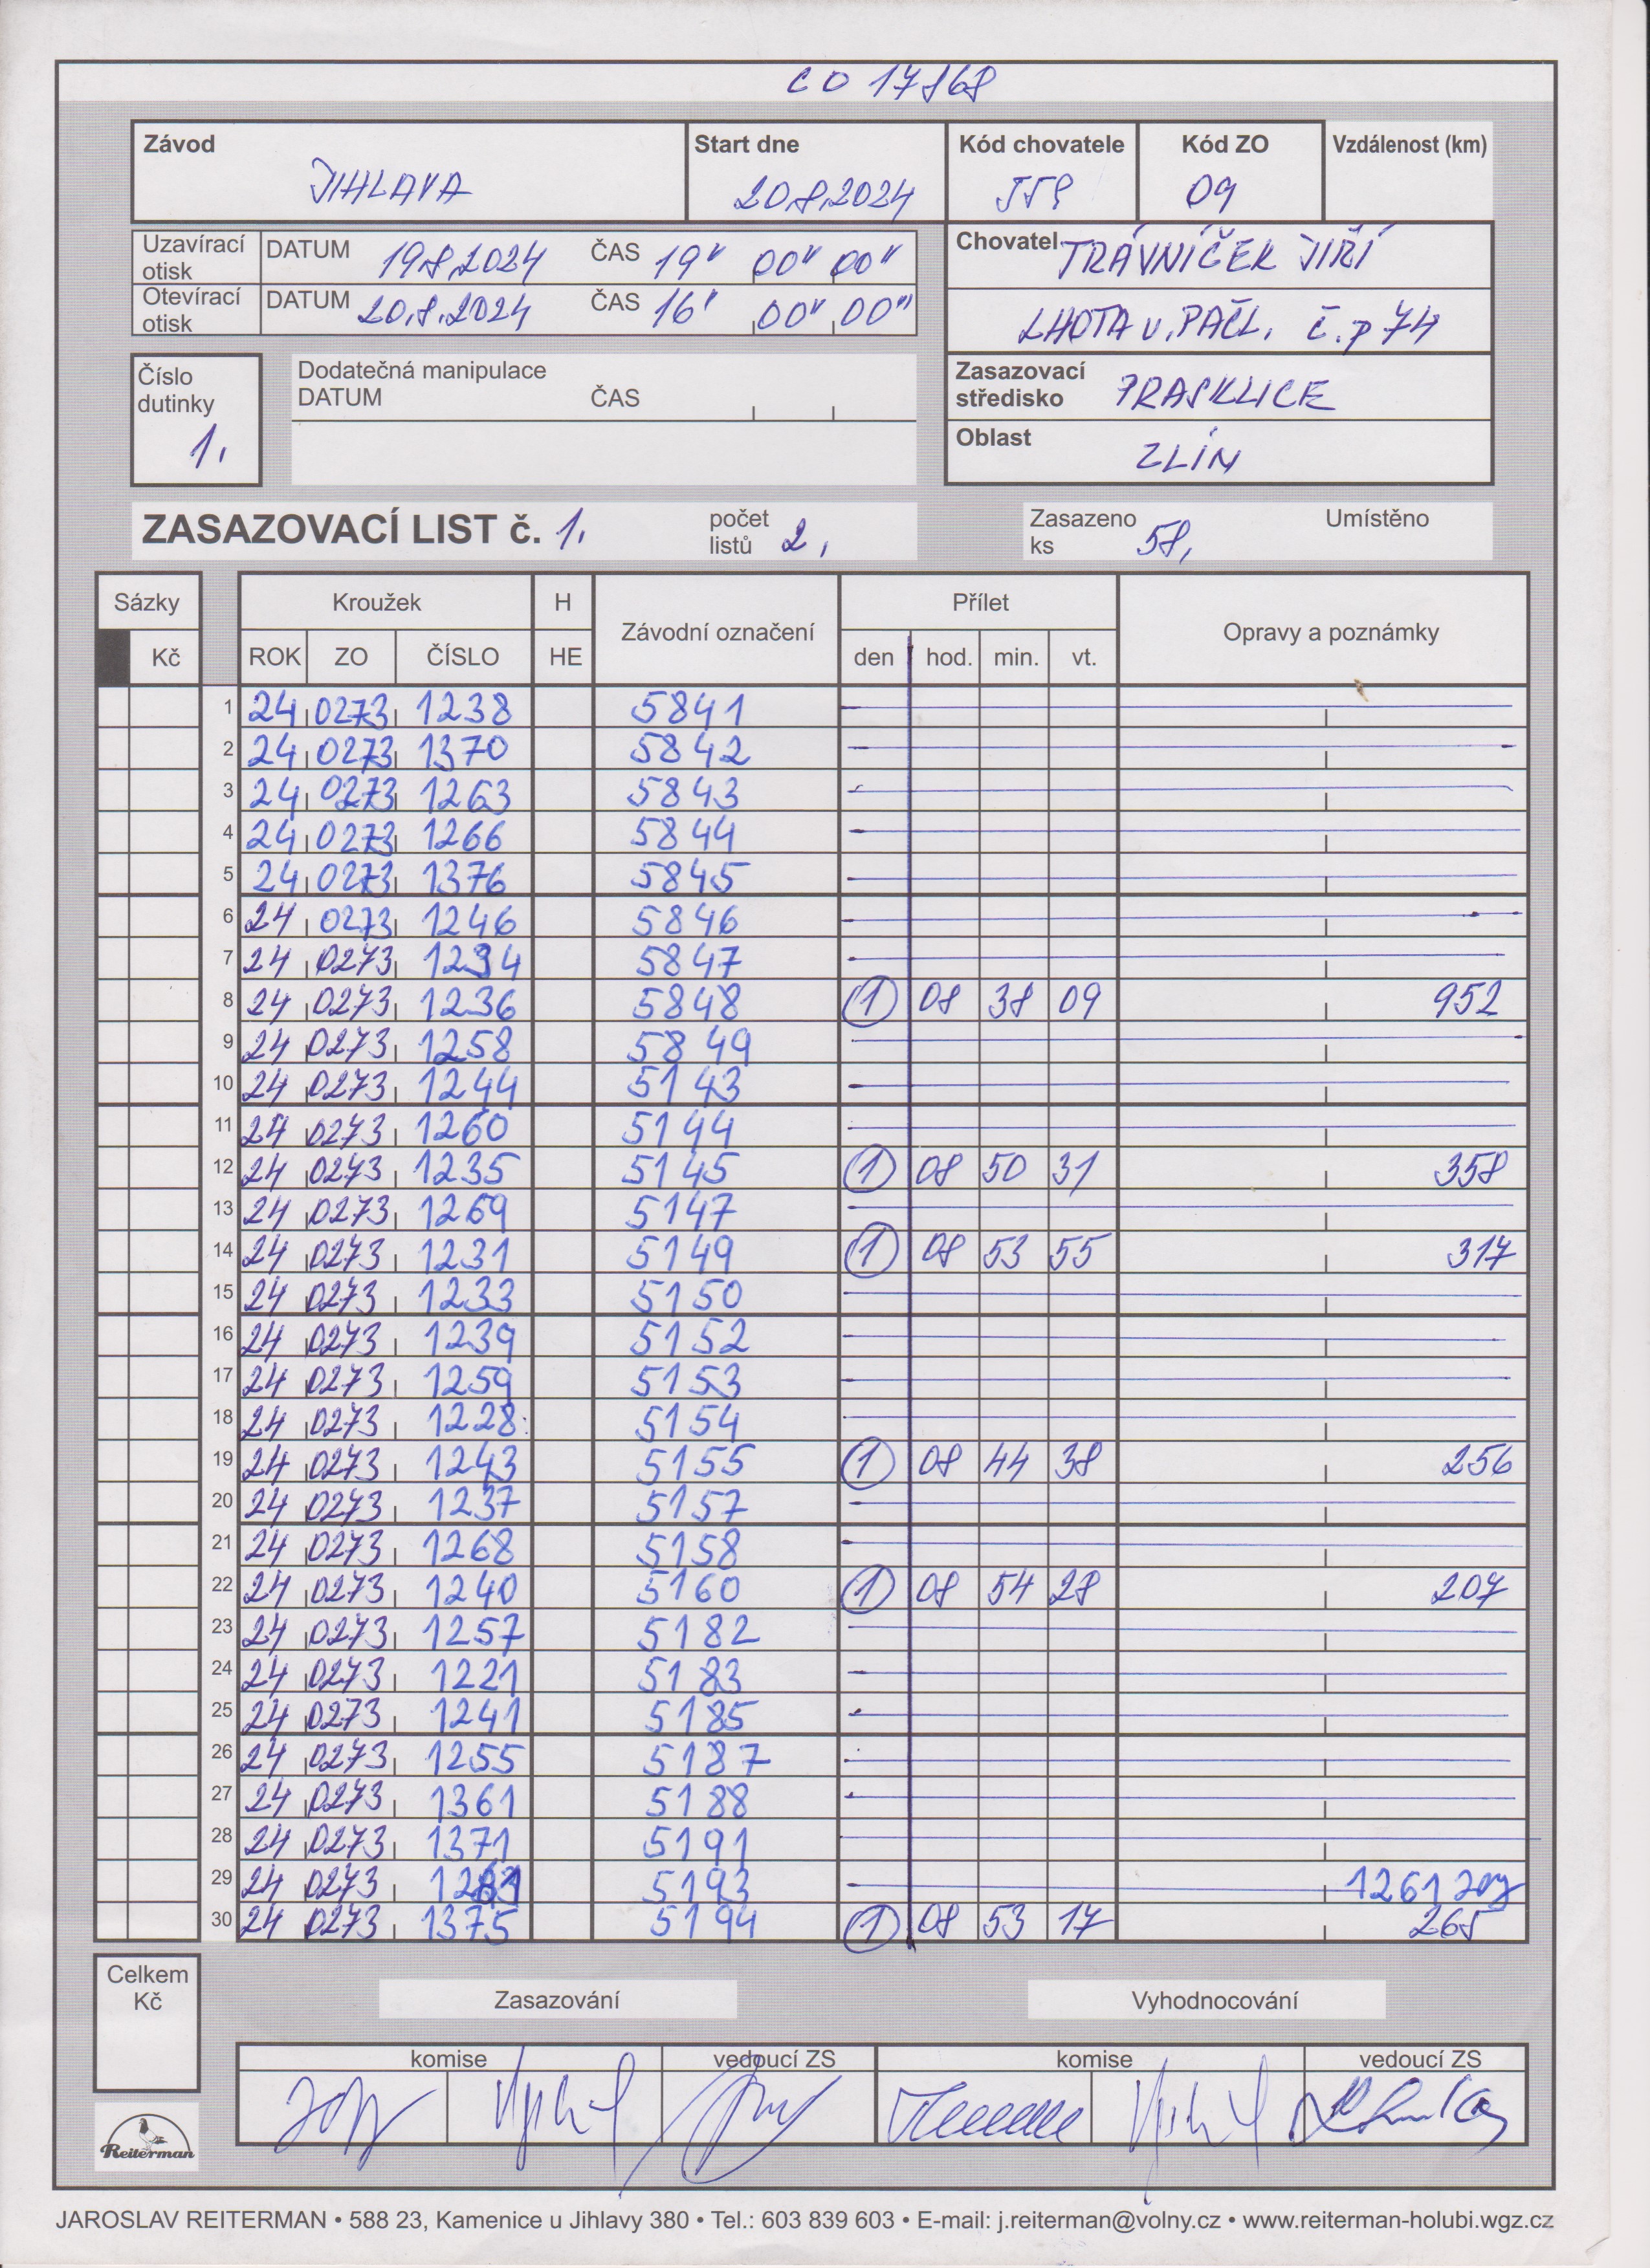 CO 17868
Závod Start dne Kód chovatele Kód ZO Vzdálenost (km)
JIHLAVA 20.8.2024 09
Uzavírací otisk DATUM 19.8.2024 ČAS 19" 00" 00"
Otevírací otisk DATUM 20.8.2024 ČAS 16" 00" 00"
Chovatel TRÁVNÍČEK JIŘÍ
LHOTA U. PAČL. č.p 74
Číslo dutinky 1.
Dodatečná manipulace
DATUM ČAS
Zasazovací středisko PRASKLICE
Oblast ZLÍN
ZASAZOVACÍ LIST č. 1. počet listů 2. Zasazeno ks 58, Umístěno
Sázky Kroužek H Závodní označení Přílet Opravy a poznámky
Kč ROK ZO ČÍSLO HE den hod. min. vt.
1 24 0273 1238 5841
2 24 0273 1370 5842
3 24 0273 1263 5843
4 24 0273 1266 5844
5 24 0273 1376 5845
6 24 0273 1246 5846
7 24 0273 1234 5847
8 24 0273 1236 5848 1 08 38 09 952
9 24 0273 1258 5849
10 24 0273 1244 5143
11 24 0273 1260 5144
12 24 0273 1235 5145 1 08 50 31 358
13 24 0273 1269 5147
14 24 0273 1231 5149 1 08 53 55 317
15 24 0273 1233 5150
16 24 0273 1239 5152
17 24 0273 1259 5153
18 24 0273 1228 5154
19 24 0273 1243 5155 1 08 44 38 256
20 24 0273 1237 5157
21 24 0273 1268 5158
22 24 0273 1240 5160 1 08 54 28 207
23 24 0273 1257 5182
24 24 0273 1221 5183
25 24 0273 1241 5185
26 24 0273 1255 5187
27 24 0273 1361 5188
28 24 0273 1371 5191
29 24 0273 5193 1261
30 24 0273 1375 5194 1 08 53 17 265
Celkem Kč
Zasazování Vyhodnocování
komise vedoucí ZS komise vedoucí ZS
Reiterman
JAROSLAV REITERMAN • 588 23, Kamenice u Jihlavy 380 • Tel.: 603 839 603 • E-mail: j.reiterman@volny.cz • www.reiterman-holubi.wgz.cz